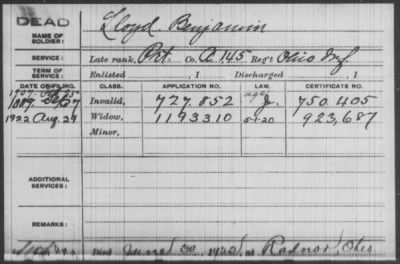 DEAD
NAME OF SOLDIER:
Lloyd Benjamin
SERVICE:
Late rank, Prt. Co. A 145 Reg't Ohio Inf.
TERM OF SERVICE:
Enlisted , 1 Discharged , 1
DATE OF FILING. CLASS. APPLICATION NO. LAW. CERTIFICATE NO.
age
Invalid, 727.852 J. 750.405
1922 Aug. 29 Widow, 1193310 5-1-20 923,687
Minor,
ADDITIONAL SERVICES:
REMARKS:
Died June 1922, at Radnor, Ohio